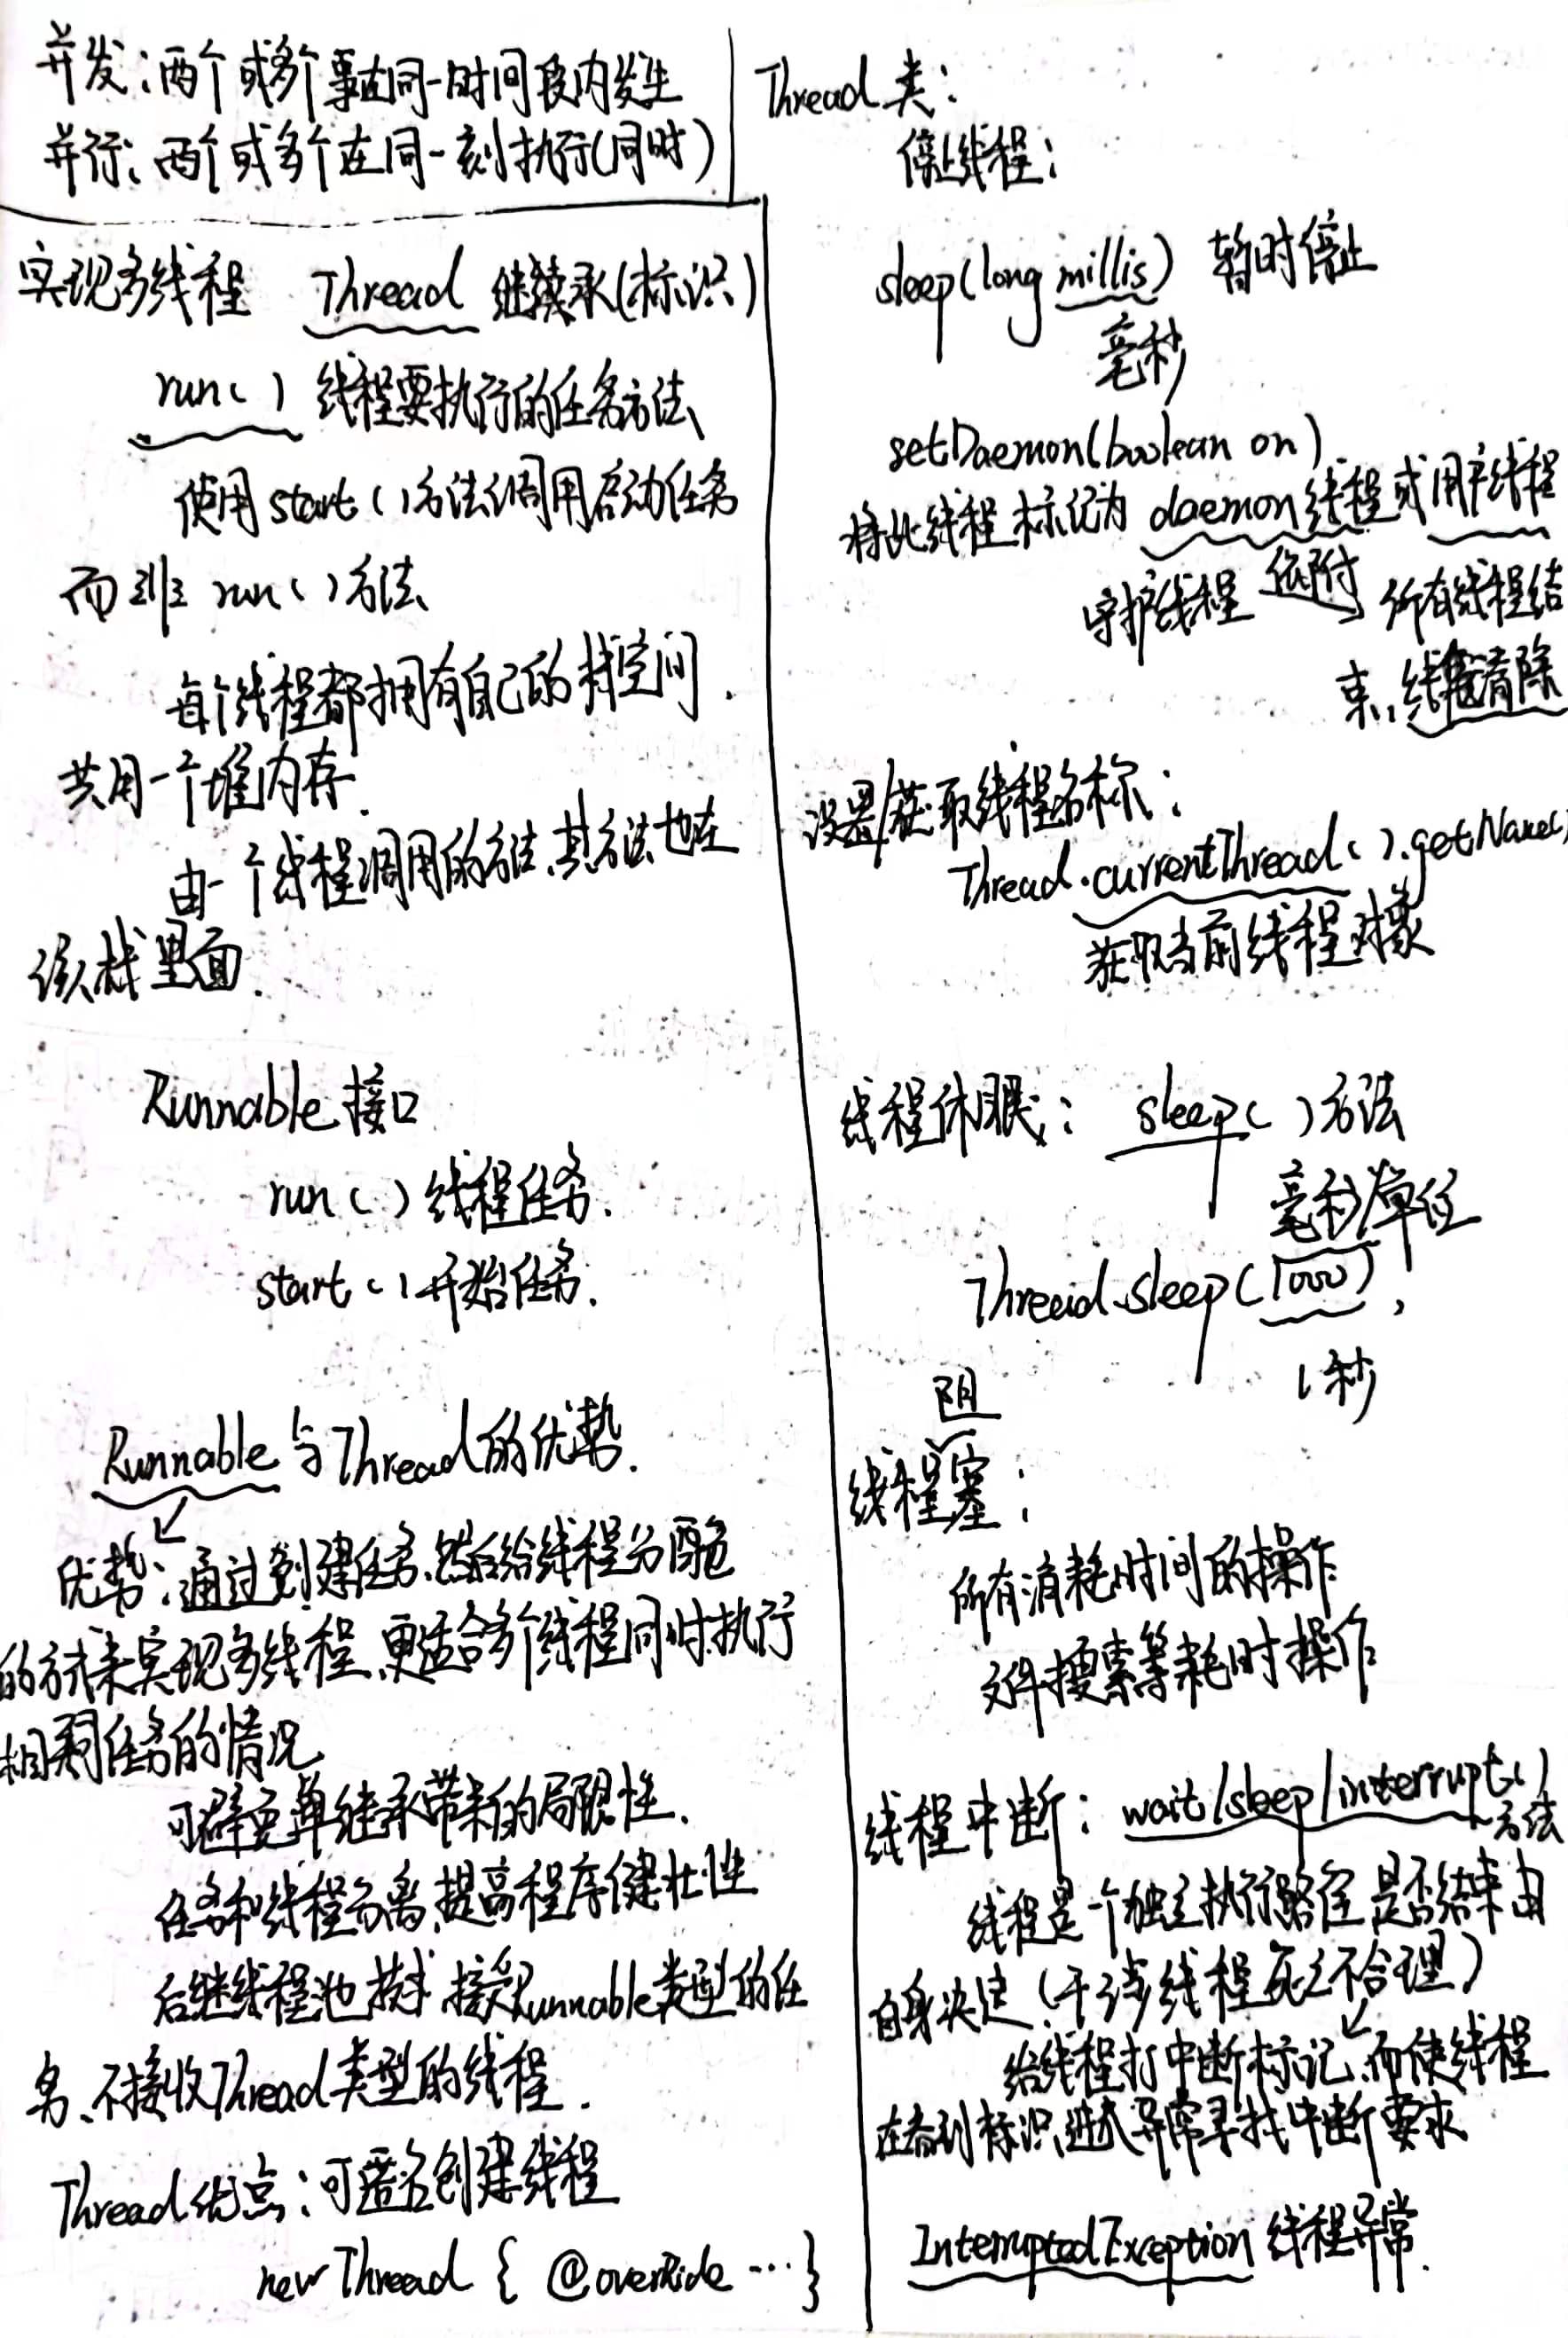 并发:两个或多个事在同一时间段内发生
并行:两个或多个在同一刻执行(同时)
实现多线程 Thread 继承(标识)
run() 线程要执行的任务方法
使用start()方法调用启动任务
而非run()方法
每个线程都拥有自己的栈空间.
共用一个堆内存.
由一个线程调用的方法,其方法也在
该栈里面.
Runnable接口
run()线程任务.
start()开始任务.
Runnable与Thread的优势.
优势:通过创建任务,然后给线程分配
的方式来实现多线程,更适合多个线程同时执行
相同任务的情况
可避免单继承带来的局限性.
任务和线程分离,提高程序健壮性
后继线程池技术,接受Runnable类型的任
务、不接收Thread类型的线程.
Thread优点:可匿名创建线程
new Thread { @override ... }
Thread类:
停止线程:
sleep(long millis) 暂时停止
毫秒
setDaemon(boolean on)
将此线程标记为 daemon线程或用户线程
守护线程 依附 所有线程结
束,线程清除
设置/获取线程名称:
Thread.currentThread().getName()
获取当前线程对象
线程休眠: sleep()方法
毫秒单位
Thread.sleep(1000),
1秒
线程阻塞:
所有消耗时间的操作
文件搜索等耗时操作
线程中断: wait/sleep/interrupt()方法
线程是一个独立执行路径,是否结束由
自身决定,(干涉线程死亡不合理)
给线程打中断标记,而使线程
在看到标识,进入异常寻找中断要求
InterruptedException 线程异常.